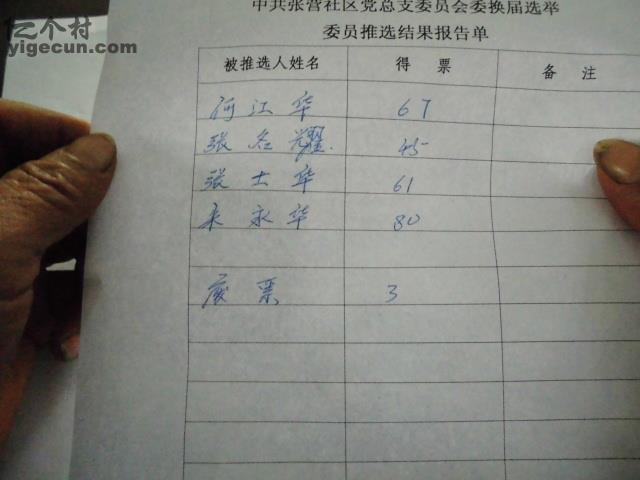 亿个村
yigecun.com
中共张营社区党总支委员会委换届选举
委员推选结果报告单
被推选人姓名 得 票 备 注
何江华 67
张名耀 45
张士华 61
朱永华 80
废票 3